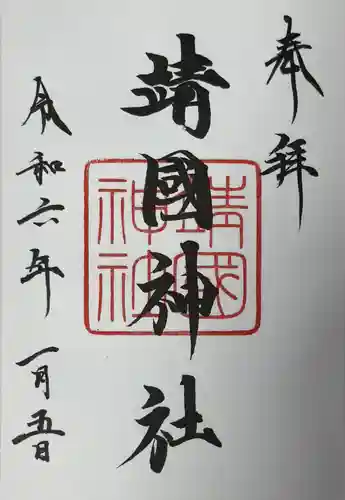 奉拝
靖國神社
靖國神社
令和六年 一月五日